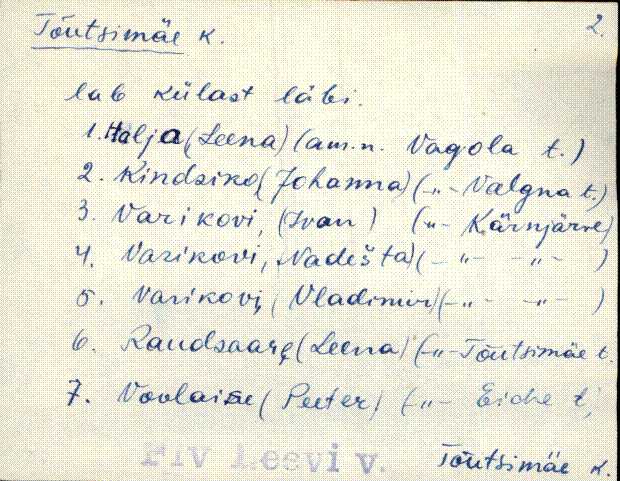 Tõutsimäe k. 2.
lab külast läbi.
1. Halja (Leena) (am.n. Vagola t.)
2. Kindsiko (Johanna) (-„- Valgna t.)
3. Varikovi, (Ivan) („- Kärnjärve)
4. Varikovi, Nadešta) (-„- -„- )
5. Varikovi, (Vladimir) (-„- -„- )
6. Raudsaare (Leena) (-„- Tõutsimäe t.
7. Voolaine (Peeter) (-„- Eiche t,
Flv Leevi v. Tõutsimäe k.